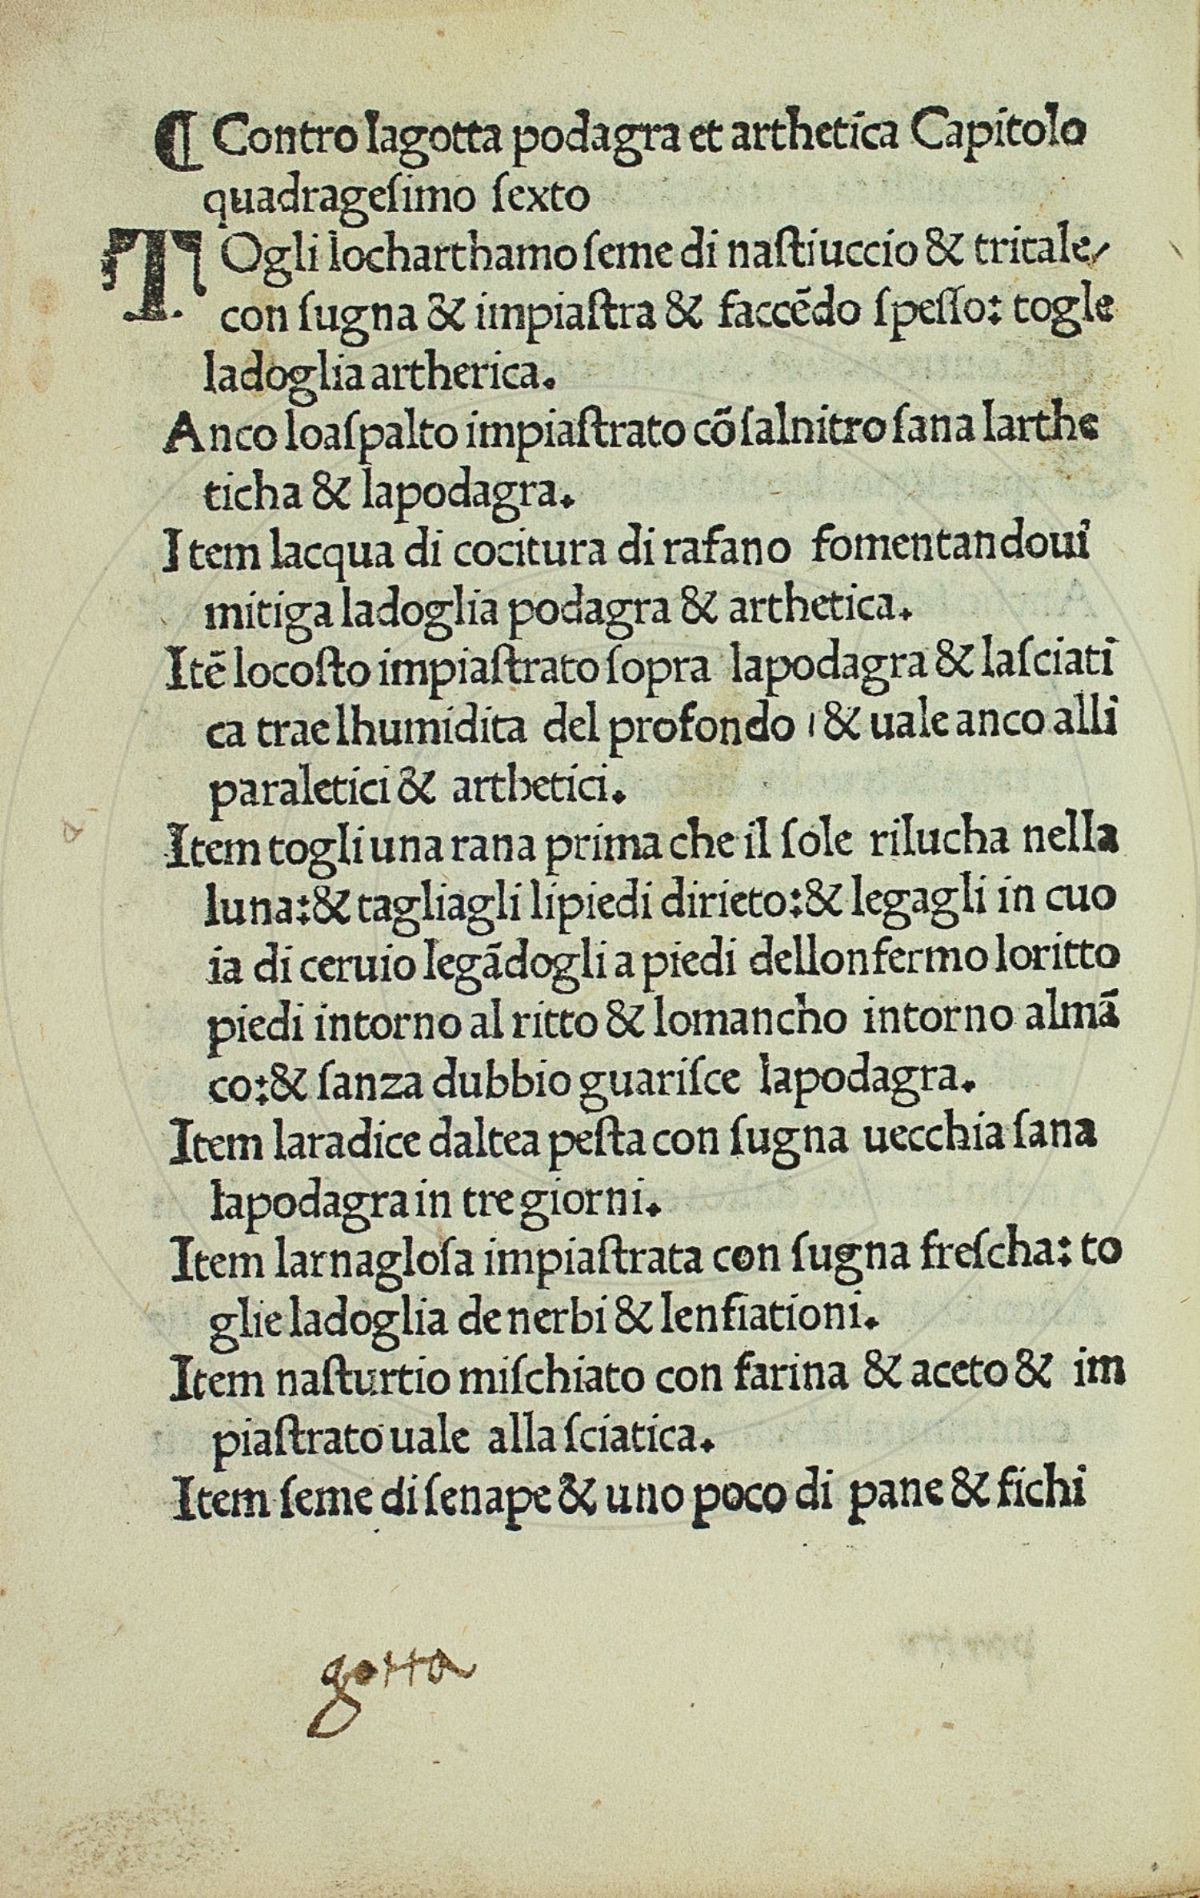 ¶ Contro lagotta podagra et arthetica Capitolo
quadrageſimo ſexto
TOgli locharthamo ſeme di naſtiuccio & tritale/
con ſugna & impiaſtra & faccēdo ſpeſſo: togle
ladoglia artherica.
Anco loaſpalto impiaſtrato cō ſalnitro ſana larthe
ticha & lapodagra.
Item lacqua di cocitura di rafano fomentandoui
mitiga ladoglia podagra & arthetica.
Itē locoſto impiaſtrato ſopra lapodagra & laſciati
ca trae lhumidita del profondo / & uale anco alli
paraletici & arthetici.
Item togli una rana prima che il ſole rilucha nella
luna: & tagliagli lipiedi dirieto: & legagli in cuo
ia di ceruio legādogli a piedi dellonfermo loritto
piedi intorno al ritto & lomancho intorno almā
co: & ſanza dubbio guariſce lapodagra.
Item laradice daltea peſta con ſugna uecchia ſana
lapodagra in tre giorni.
Item larnagloſa impiaſtrata con ſugna freſcha: to
glie ladoglia de nerbi & lenfiationi.
Item naſturtio miſchiato con farina & aceto & im
piaſtrato uale alla ſciatica.
Item ſeme di ſenape & uno poco di pane & fichi
gotta